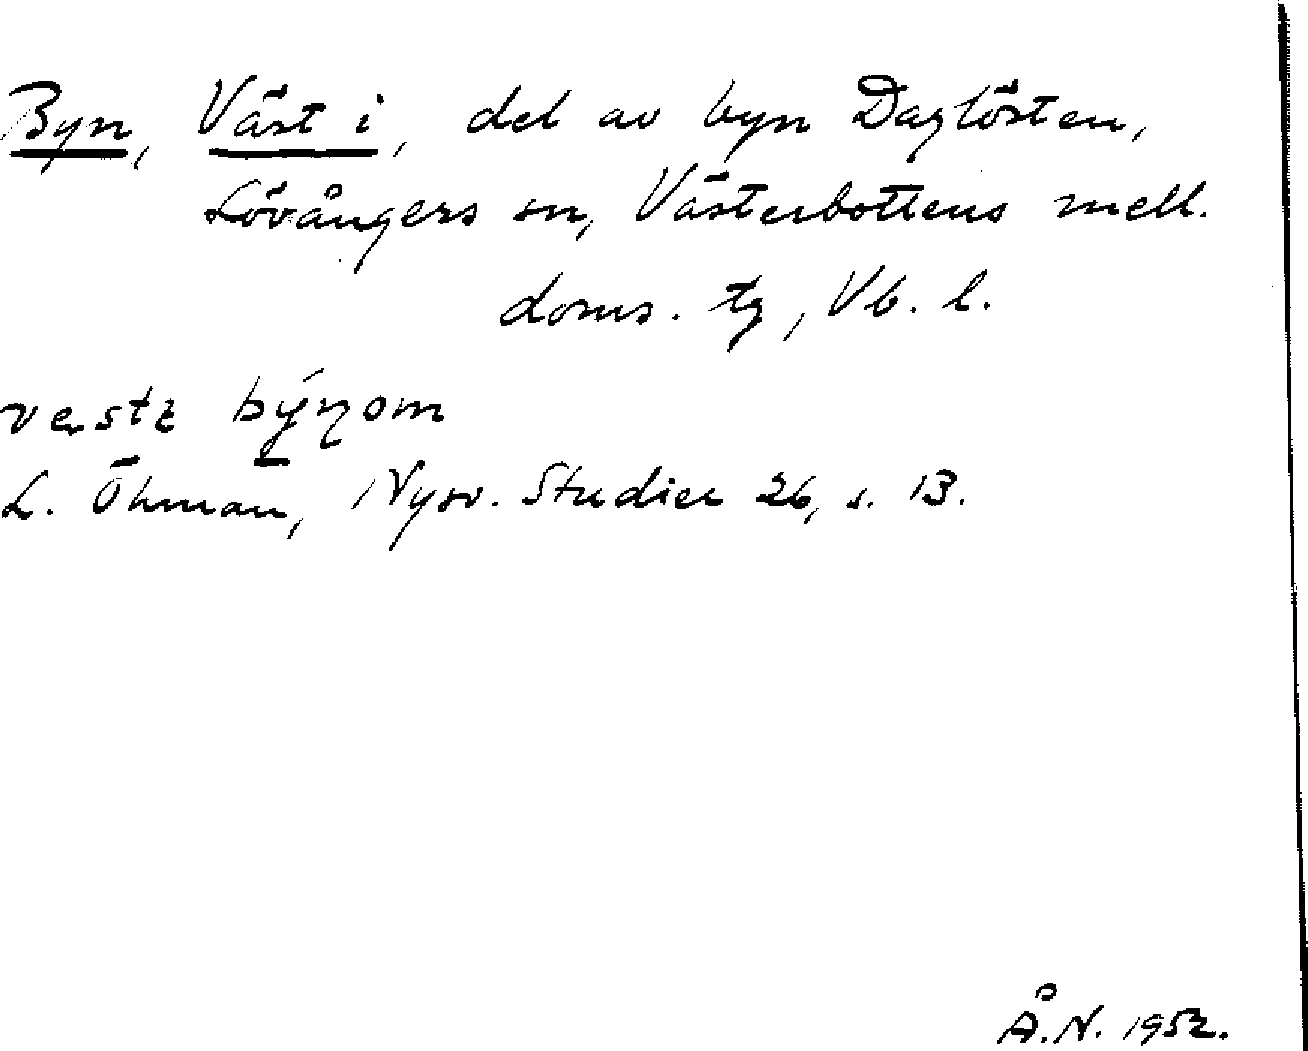 Byn, Väst i, del av byn Daglösten,
Lövångers sn, Västerbottens mell.
doms. tg, Vb. l.
býŋom
L. Öhman, Nysv. Studier 26, s. 13.
Å.N. 1952.